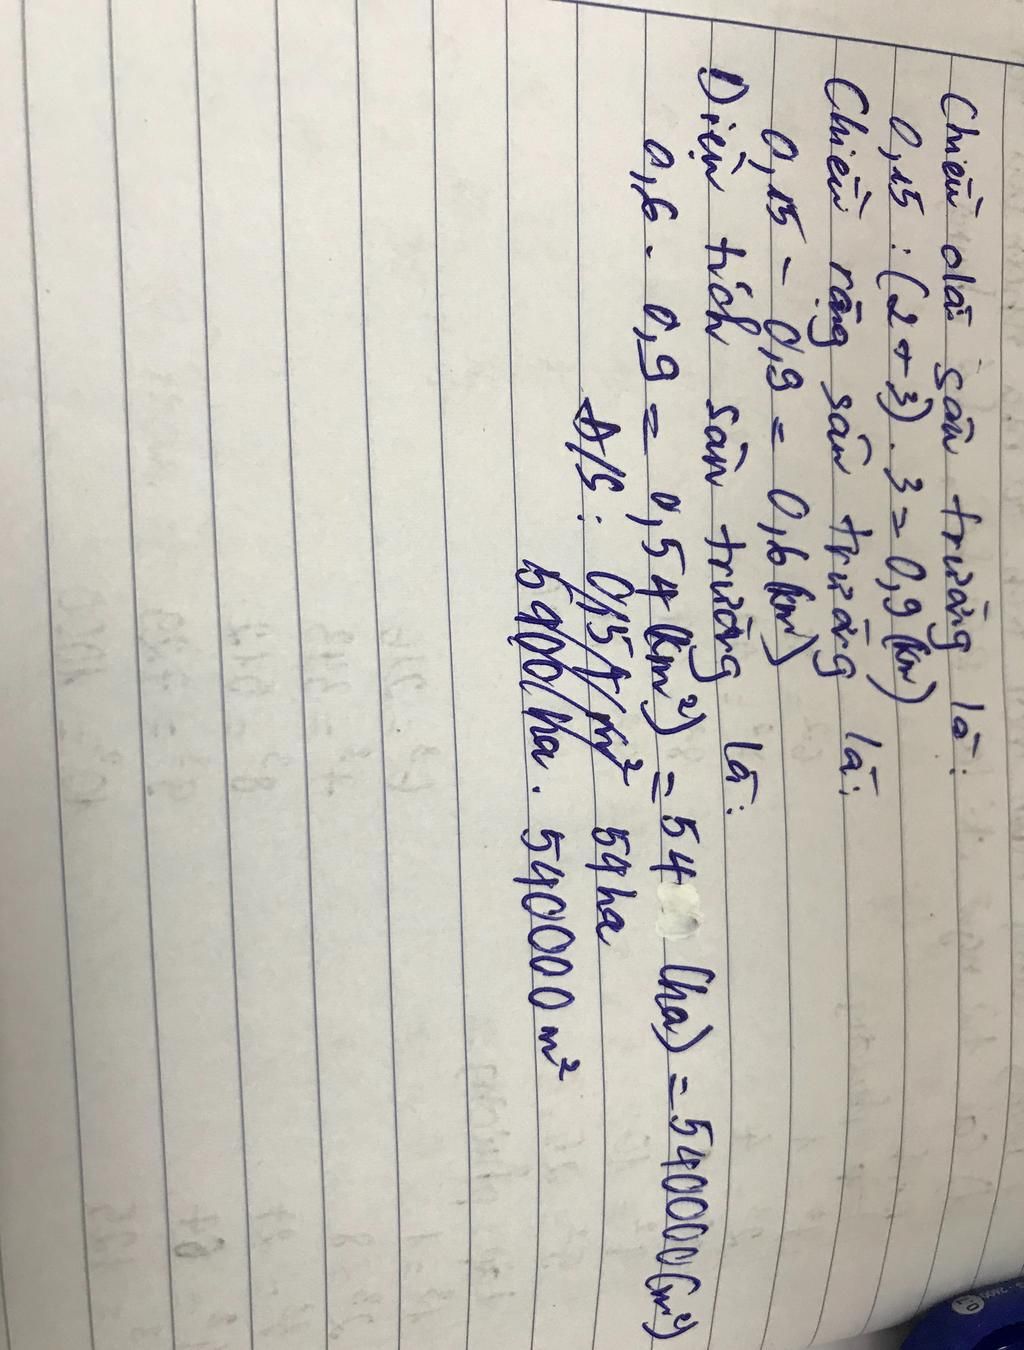 Chiều dài sân trường là:
0,15 : (2+3) . 3 = 0,9 (km)
Chiều rộng sân trường là:
0,15 - 0,9 = 0,6 (km)
Diện tích sân trường là:
0,6 . 0,9 = 0,54 (km²) = 54 (ha) = 540000 (m²)
Đ/S: 0,54 m² 54 ha
5400 ha. 540000 m²